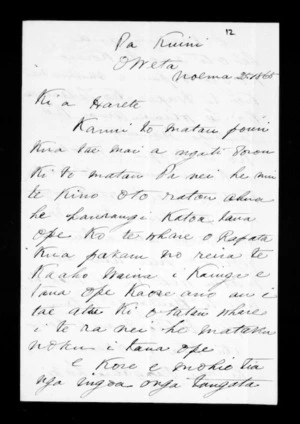 12
Pa Kuini
Oweta
Noema 25 1865
Ki a Harete
Kanui to matau pouri
kua tae mai a ngati Porou
ki to matau Pa nei he nui
te kino o to ratou ahua
he Haurangi katoa tana
ope Ko te whare o Rapata
kua pakaru no reira te
i Rangi e
tana ope Kaore ano au i
tae atu ki o tatau whare
i te ra nei he mataku
noku i tana ope
e Kore e mohio tia
nga ingoa o nga tangata